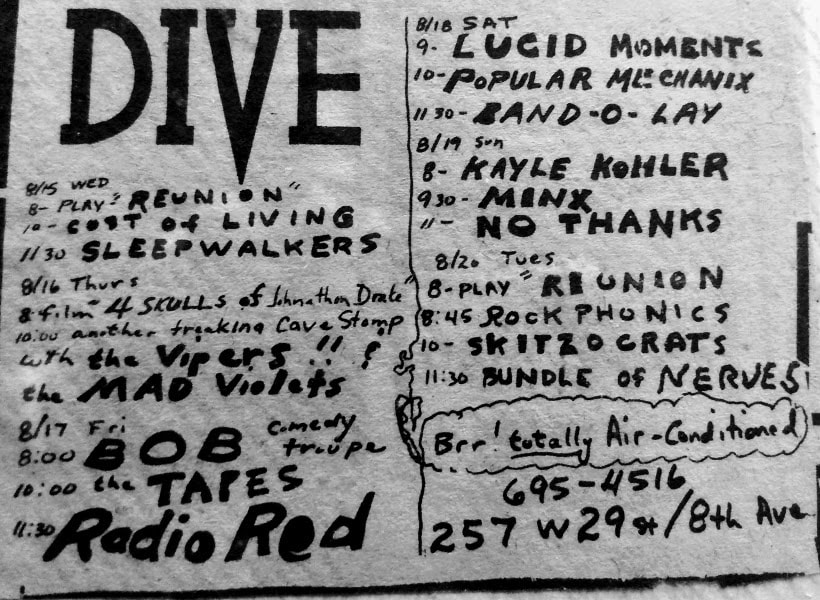 DIVE
8/15 WED
8- PLAY "REUNION"
10- COST of LIVING
11 30 SLEEPWALKERS
8/16 Thurs
8 film "4 SKULLS of Johnathon Drake"
10:00 another freaking Cave Stomp
with the Vipers !! &
the MAD Violets
8/17 Fri
8:00 BOB comedy troupe
10:00 the TAPES
11:30 Radio Red
8/18 SAT
9- LUCID MOMENTS
10- POPULAR MECHANIX
11 30- BAND-O-LAY
8/19 Sun
8- KAYLE KOHLER
9 30- MINX
11- NO THANKS
8/20 Tues
8- PLAY "REUNION
8:45 ROCK PHONICS
10- SKITZOCRATS
11:30 BUNDLE of NERVES
Brr! totally Air-Conditioned
695-4516
257 W 29 st/8th Ave